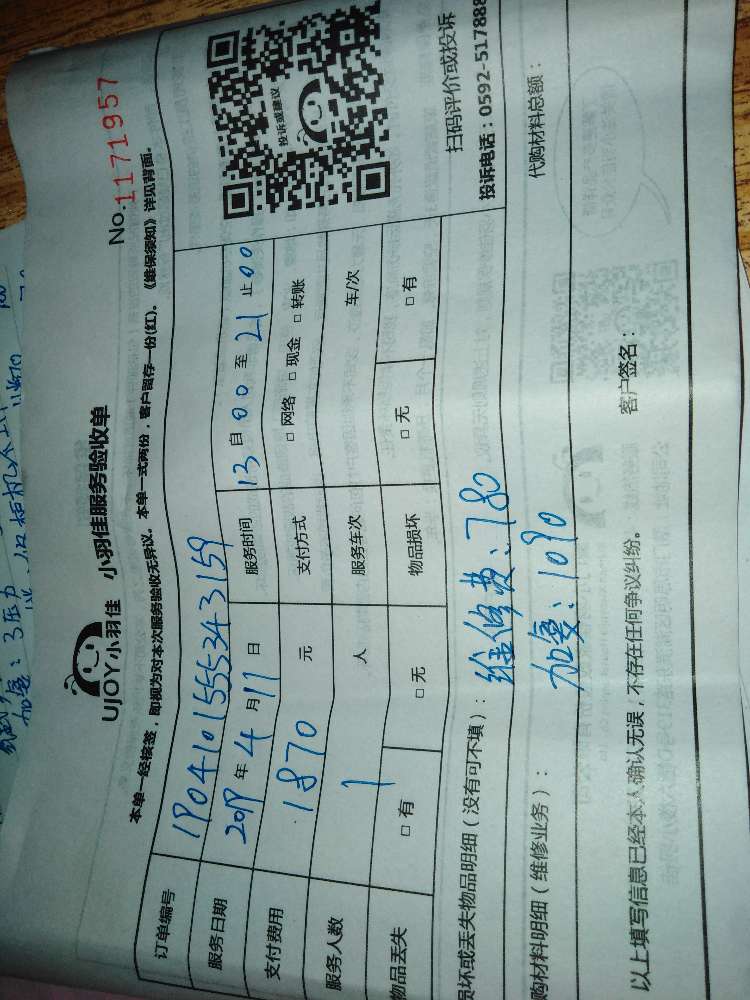 UJOY小羽佳 小羽佳服务验收单
No.1171957
本单一经核签，即视为对本次服务验收无异议。本单一式两份，客户留存一份(红)。《维保须知》详见背面。
订单编号 1904101555343159
服务日期 2019年4月11日 服务时间 13自00至21止00
支付费用 1870元 支付方式 □网络 □现金 □转账
服务人数 1人 服务车次 车/次
物品丢失 □有 □无 物品损坏 □无 □有
投诉或建议
扫码评价或投诉
投诉电话：0592-517888
损坏或丢失物品明细（没有可不填）：维修费：780
购材料明细（维修业务）：加氟：1090
代购材料总额：
以上填写信息已经本人确认无误，不存在任何争议纠纷。
客户签名：